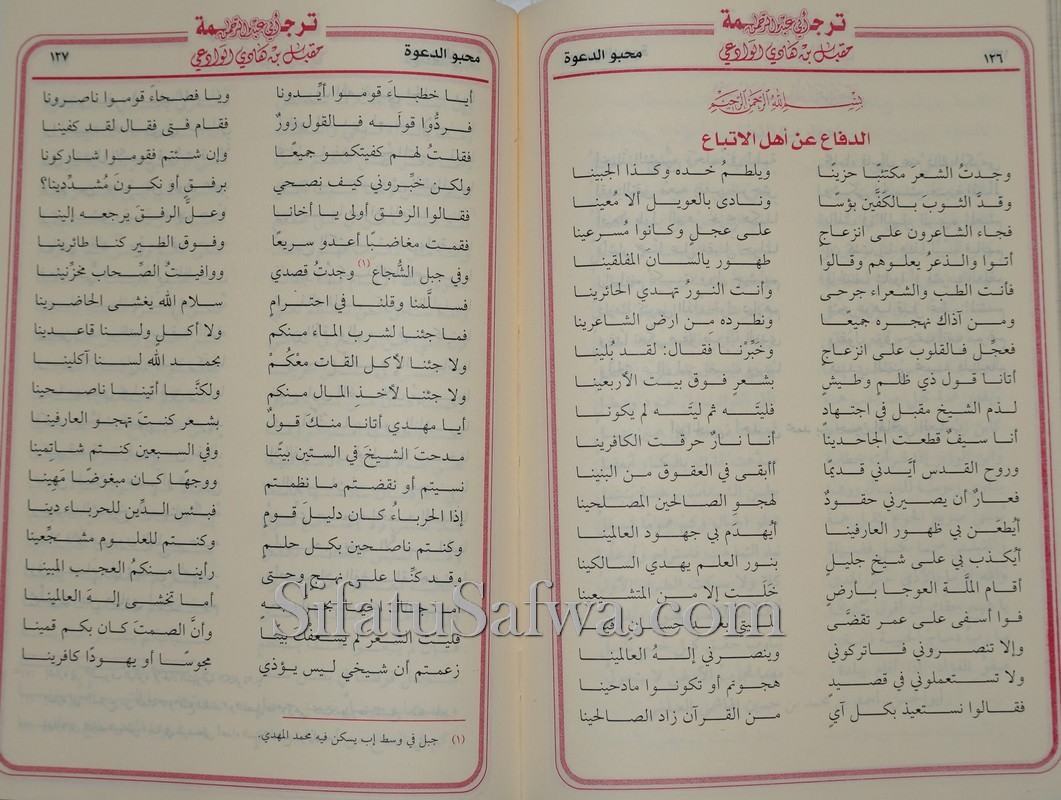 ترجمة أبي عبد الرحمن
مقبل بن هادي الوادعي
١٣٦
محبو الدعوة
بسم الله الرحمن الرحيم
الدفاع عن أهل الاتباع
وجدتُ الشعر مكتئبًا حزينًا ويلطمُ خده وكذا الجبينا
وقدَّ الثوبَ بالكفَّين بؤسًا ونادى بالعويل ألا مُعينا
فجاء الشاعرون على انزعاج على عجلٍ وكانوا مُسرعينا
أتوا والذعرُ يعلوهم وقالوا طهور يالسان المفلقينا
فأنت الطب والشعراء جرحى وأنت النورُ تهدي الحائرينا
ومن آذاك نهجره جميعًا ونطرده من ارض الشاعرينا
فعجِّل فالقلوب على انزعاج وخَبِّرْنا فقال: لقد بُلينا
أتانا قول ذي ظلمٍ وطيشٍ بشعرٍ فوق بيت الأربعينا
لذم الشيخ مقبل في اجتهاد فليتَه ثم ليتَه لم يكونا
أنا سيفٌ قطعت الجاحدينا أنا نارٌ حرقت الكافرينا
وروح القدس أيَّدني قديمًا أأبقى في العقوق من البنينا
فعارٌ أن يصيرني حقودٌ لهجوِ الصالحين المصلحينا
أيُطعَن بي ظهور العارفينا أيُهدَم بي جهود العالمينا
أيُكذب بي على شيخٍ جليلٍ بنور العلم يهدي السالكينا
أقام الملَّة العوجا بأرضٍ خَلَت إلا من المتشيعينا
فوا أسفى على عمر تقضَّى بعد حسان
وإلا تنصروني فاتركوني وينصرني إلهُ العالمينا
ولا تستعملوني في قصيدٍ هجوتم أو تكونوا مادحينا
فقالوا نستعيذ بكل آيٍ من القرآن زاد الصالحينا
ترجمة أبي عبد الرحمن
مقبل بن هادي الوادعي
محبو الدعوة
١٣٧
أيا خطباءَ قوموا أيِّدونا ويا فصحاءَ قوموا ناصرونا
فردُّوا قولَه فالقول زورٌ فقام فتى فقال لقد كفينا
فقلتُ لهم كفيتكمو جميعًا وإن شئتم فقوموا شاركونا
ولكن خبِّروني كيف نصحي برفق أو نكونَ مُشدِّدينا؟
فقالوا الرفق أولى يا أخانا وعلَّ الرفقَ يرجعه إلينا
فقمت مغاضبًا أعدو سريعًا وفوق الطير كنا طائرينا
وفي جبل الشُّجاع(١) وجدتُ قصدي ووافيتُ الصِّحاب مخزِّنينا
فسلَّمنا وقلنا في احترامٍ سلام الله يغشى الحاضرينا
فما جئنا لشرب الماء منكم ولا أكلٍ ولسنا قاعدينا
ولا جئنا لأكل القات معْكُمْ بحمد الله لسنا آكلينا
ولا جئنا لأخذِ المال منكم ولكنَّا أتينا ناصحينا
أيا مهدي أتانا منك قولٌ بشعر كنتَ تهجو العارفينا
مدحتَ الشيخَ في الستين بيتًا وفي السبعين كنتم شاتمينا
نسيتم أو نقضتم ما نظمتم ووجهًا كان مبغوضًا مَهِينا
إذا الحرباءُ كان دليلَ قومٍ فبئس الدِّين للحرباء دينا
وكنتم ناصحين بكل حلمٍ وكنتم للعلوم مشجِّعينا
وقد كنَّا على نهجٍ وحتى رأينا منكمُ العجب المبينا
أما تخشى إلهَ العالمينا
فليت الشعر لم يسعفك بيتًا وأنَّ الصمتَ كان بكم قمينا
زعمتم أن شيخي ليس يؤذي مجوسًا أو يهودًا كافرينا
(١) جبل في وسط إب يسكن فيه محمد المهدي.
SifatuSafwa.com